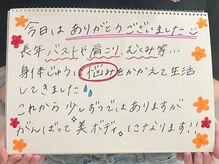 今日はありがとうございました
長年バストや肩こり、むくみ等…
身体じゅうに悩みをかかえて生活
してきました
これから少しずつではありますが
がんばって美ボディになります!!